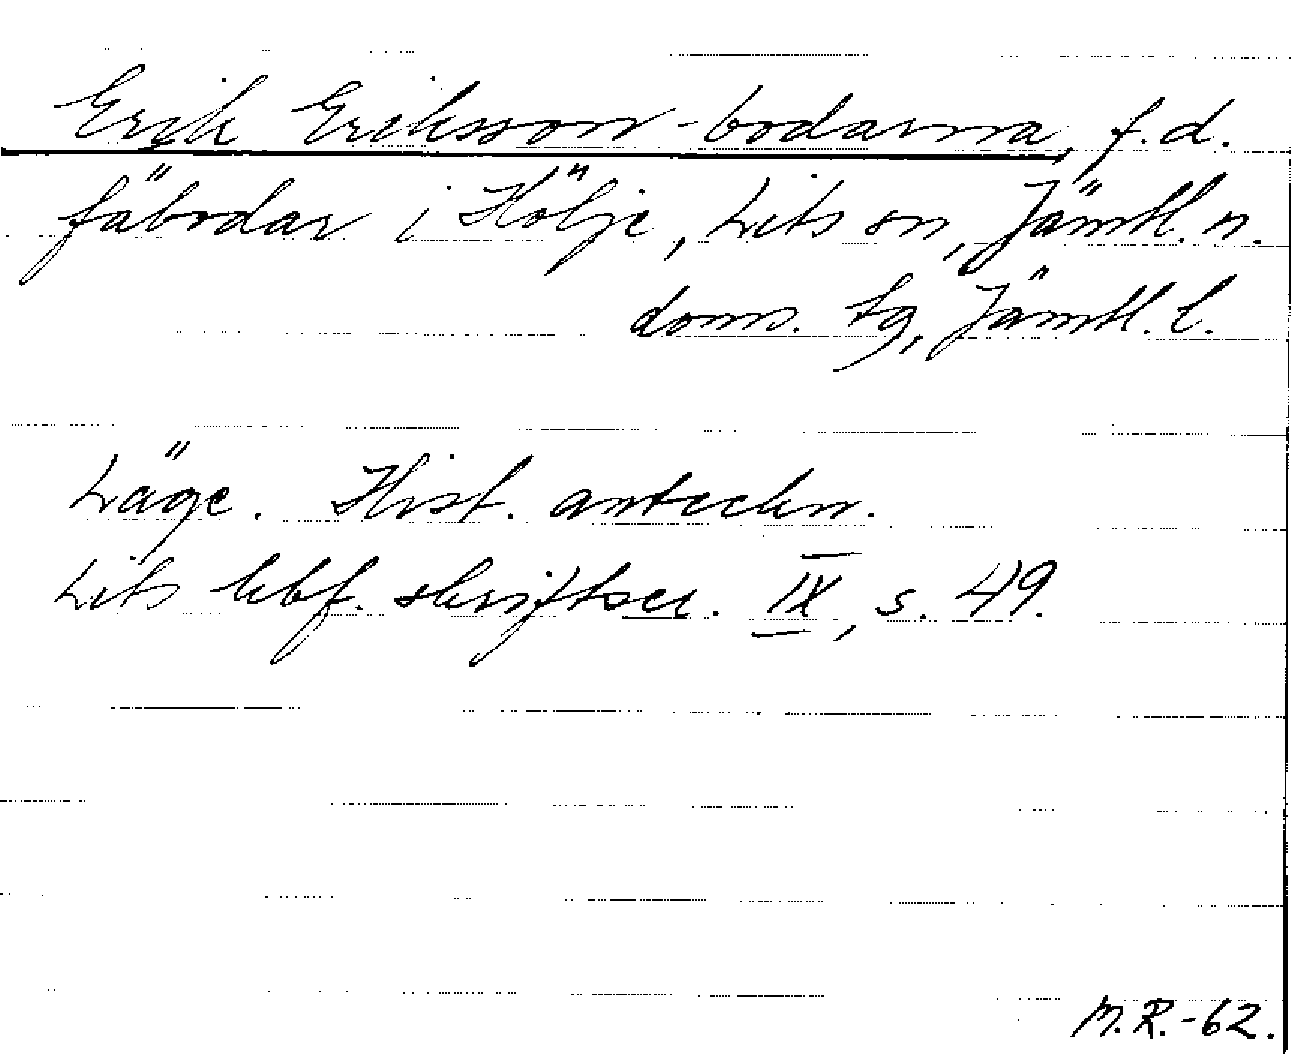 Erik Eriksson-bodarna, f.d.
fäbodar i Hölje, Lits sn, Jämtl. n.
doms. tg, Jämtl. l.
Läge. Hist. anteckn.
Lits hbf. skriftser. IX, s. 49.
M.R.-62.